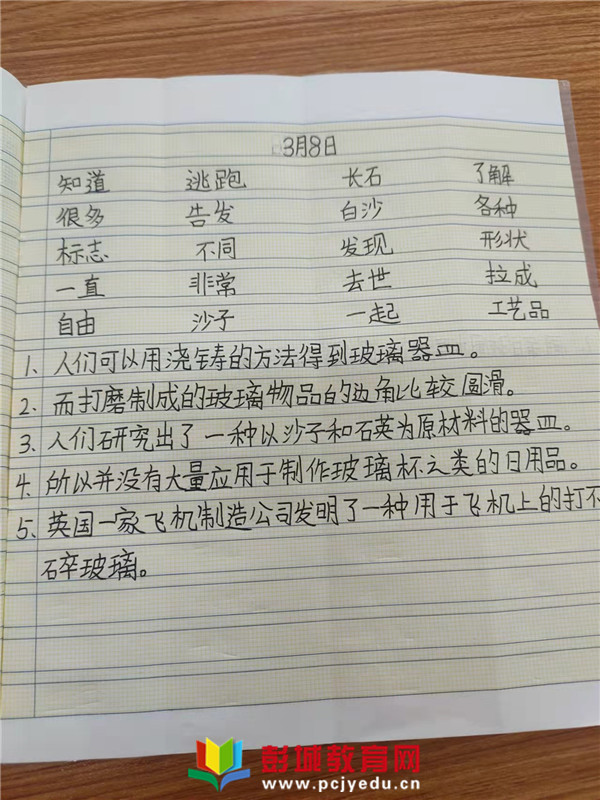 3月8日
知道 逃跑 长石 了解
很多 告发 白沙 各种
标志 不同 发现 形状
一直 非常 去世 拉成
自由 沙子 一起 工艺品
1、人们可以用浇铸的方法得到玻璃器皿。
2、而打磨制成的玻璃物品的边角比较圆滑。
3、人们研究出了一种以沙子和石英为原材料的器皿。
4、所以并没有大量应用于制作玻璃杯之类的日用品。
5、英国一家飞机制造公司发明了一种用于飞机上的打不
碎玻璃。
彭城教育网
www.pcjyedu.cn